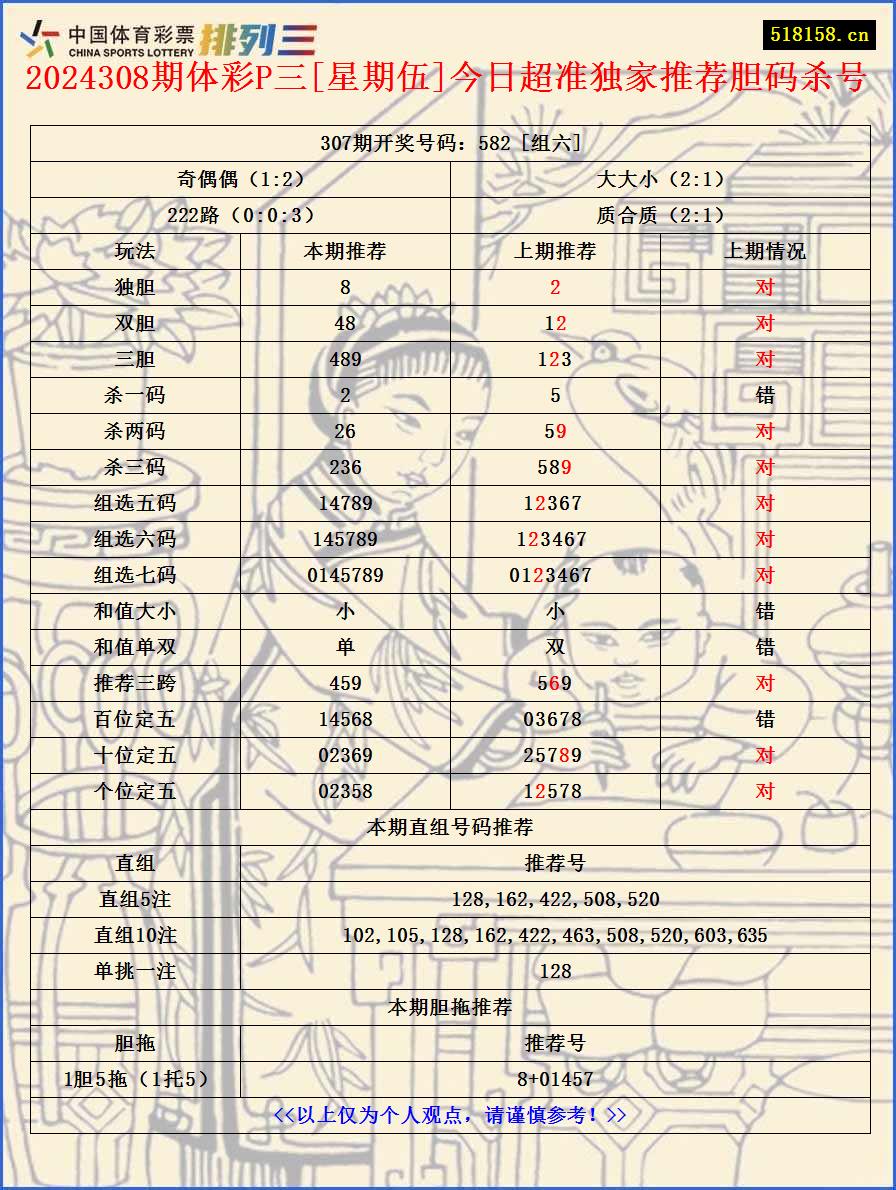 中国体育彩票 排列三
CHINA SPORTS LOTTERY
518158.cn
2024308期体彩P三[星期伍]今日超准独家推荐胆码杀号
307期开奖号码：582 [组六]
奇偶偶（1:2） 大大小（2:1）
222路（0:0:3） 质合质（2:1）
玩法 本期推荐 上期推荐 上期情况
独胆 8 2 对
双胆 48 12 对
三胆 489 123 对
杀一码 2 5 错
杀两码 26 59 对
杀三码 236 589 对
组选五码 14789 12367 对
组选六码 145789 123467 对
组选七码 0145789 0123467 对
和值大小 小 小 错
和值单双 单 双 错
推荐三跨 459 569 对
百位定五 14568 03678 错
十位定五 02369 25789 对
个位定五 02358 12578 对
本期直组号码推荐
直组 推荐号
直组5注 128,162,422,508,520
直组10注 102,105,128,162,422,463,508,520,603,635
单挑一注 128
本期胆拖推荐
胆拖 推荐号
1胆5拖（1托5） 8+01457
<<以上仅为个人观点，请谨慎参考！>>